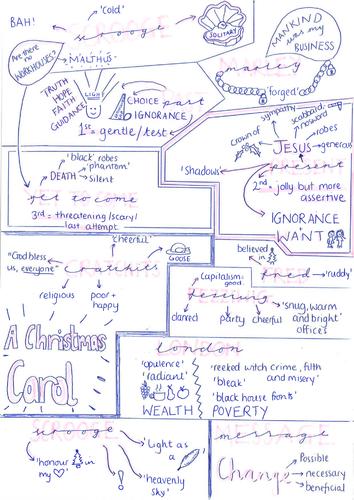 BAH!
'cold'
SCROOGE
scrooge
SOLITARY
MANKIND
was my
BUSINESS
Are there
no
WORKHOUSES?
MALTHUS
MARLEY
marley
'forged'
TRUTH
HOPE
FAITH
GUIDANCE
LIGHT
CHOICE
IGNORANCE
PAST
past
1st = gentle/test
sympathy
scabbard,
no sword
crown of
JESUS
robes
generous
'Shadows'
PRESENT
present
2nd = jolly but more
assertive.
IGNORANCE
+
WANT
'black' robes
'phantom'
DEATH
silent
YET TO COME
yet to come
3rd = threatening/scary/
last attempt.
'cheerful'
GOOSE
'God bless
us, everyone'
CRATCHITS
cratchits
religious
poor +
happy
believed
in
FRED
fred
'ruddy'
capitalism =
good.
FEZZIWIG
fezziwig
'snug, warm
and bright'
offices
danced
party
cheerful
A Christmas
Carol
LONDON
london
'opulence'
'radiant'
WEALTH
'reeked with crime, filth
and misery'
'bleak'
'black house fronts'
POVERTY
SCROOGE
scrooge
'Light as
a
'honour
in
my
!
'heavenly
sky'
MESSAGE
message
Change
Possible
necessary
beneficial